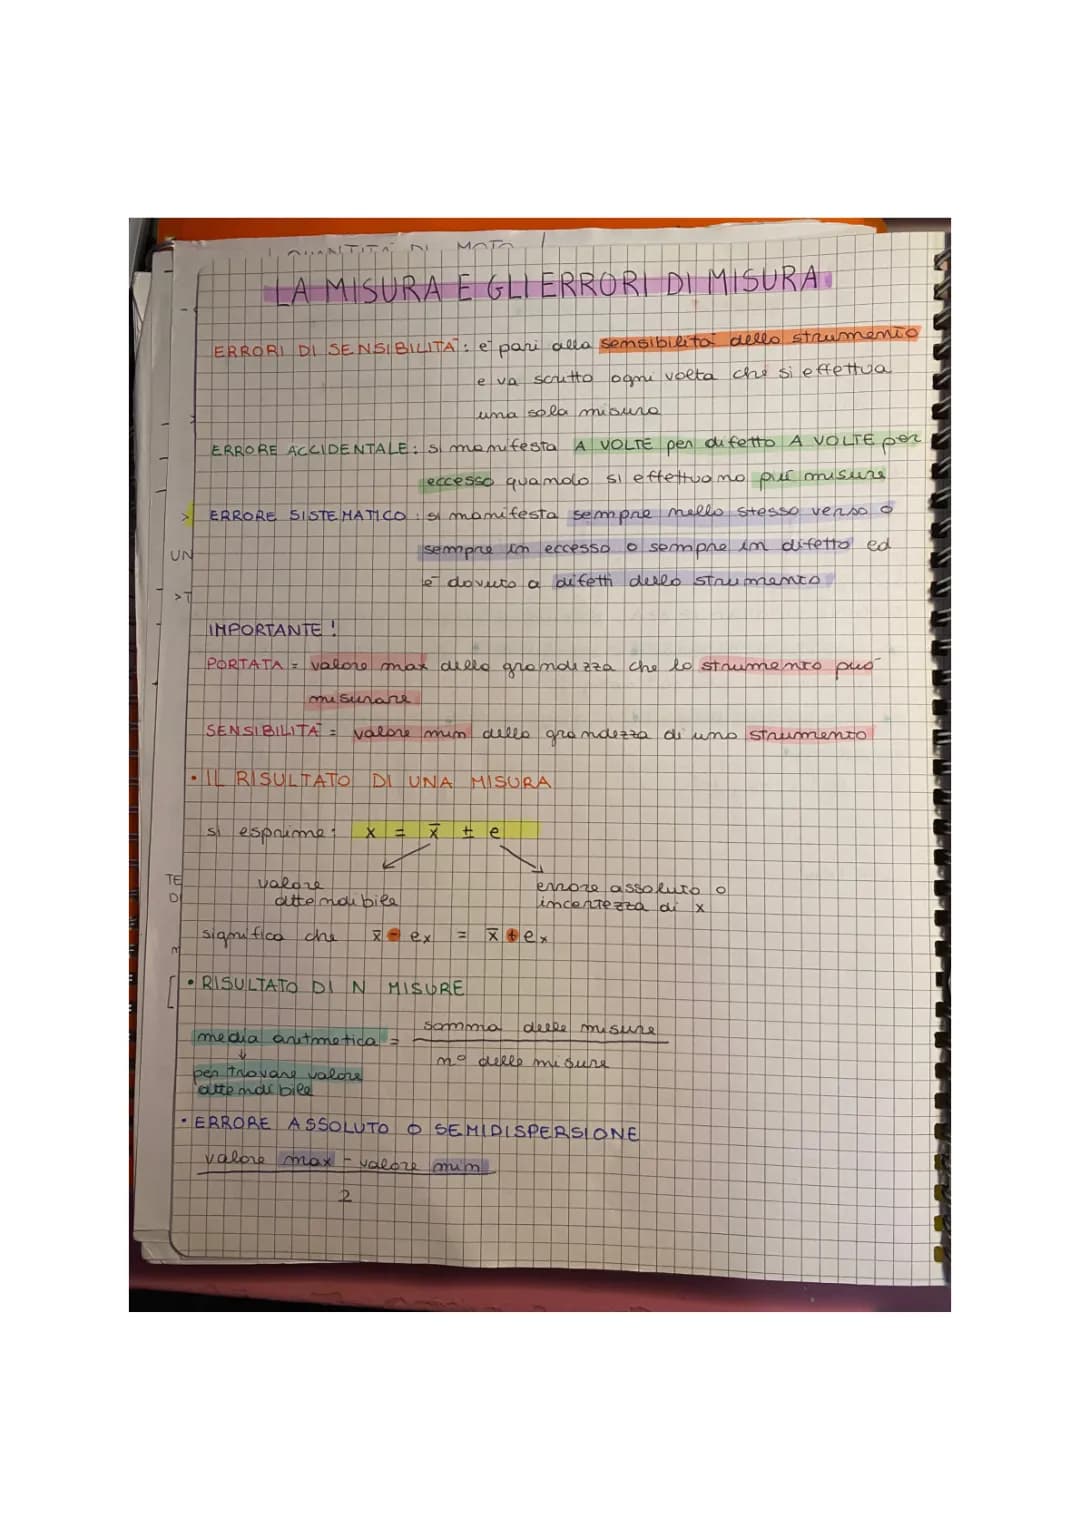 LA MISURA E GLI ERRORI DI MISURA
ERRORI DI SENSIBILITÀ: è pari alla sensibilità dello strumento
e va scritto ogni volta che si effettua
una sola misura
ERRORE ACCIDENTALE: si manifesta A VOLTE per difetto A VOLTE per
eccesso quando si effettuano più misure
> ERRORE SISTEMATICO: si manifesta sempre nello stesso verso o
sempre in eccesso o sempre in difetto ed
è dovuto a difetti dello strumento
UN
>T
IMPORTANTE!
PORTATA = valore max della grandezza che lo strumento può
misurare
SENSIBILITÀ = valore min della grandezza di uno strumento
• IL RISULTATO DI UNA MISURA
si esprime: x = x̄ ± e
TE
D
valore
attendibile
errore assoluto o
incertezza di x
significa che x̄ - eₓ = x̄ + eₓ
• RISULTATO DI N MISURE
media aritmetica = somma delle misure
n° delle misure
↓
per trovare valore
attendibile
• ERRORE ASSOLUTO O SEMIDISPERSIONE
valore max - valore min
2